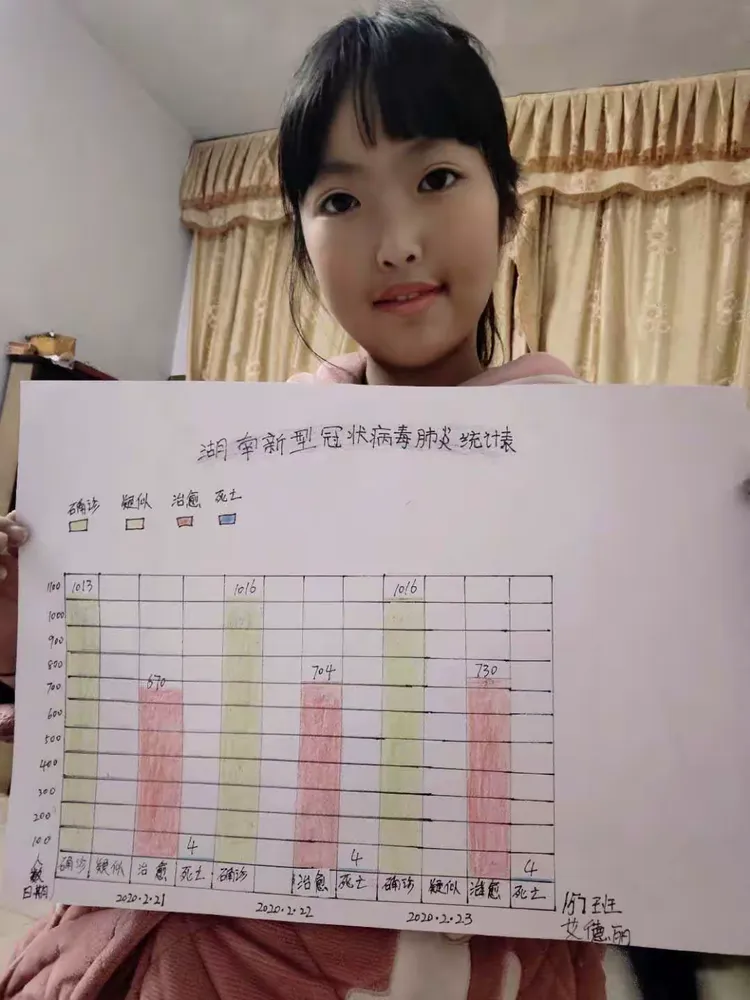 湖南新型冠状病毒肺炎统计表
确诊 疑似 治愈 死亡
1100 1013 1016 1016
1000
900
800 670 704 730
700
600
500
400
300
200
100 4 4 4
人数
日期 确诊 疑似 治愈 死亡 确诊 治愈 死亡 确诊 疑似 治愈 死亡
2020.2.21 2020.2.22 2020.2.23
艾德丽